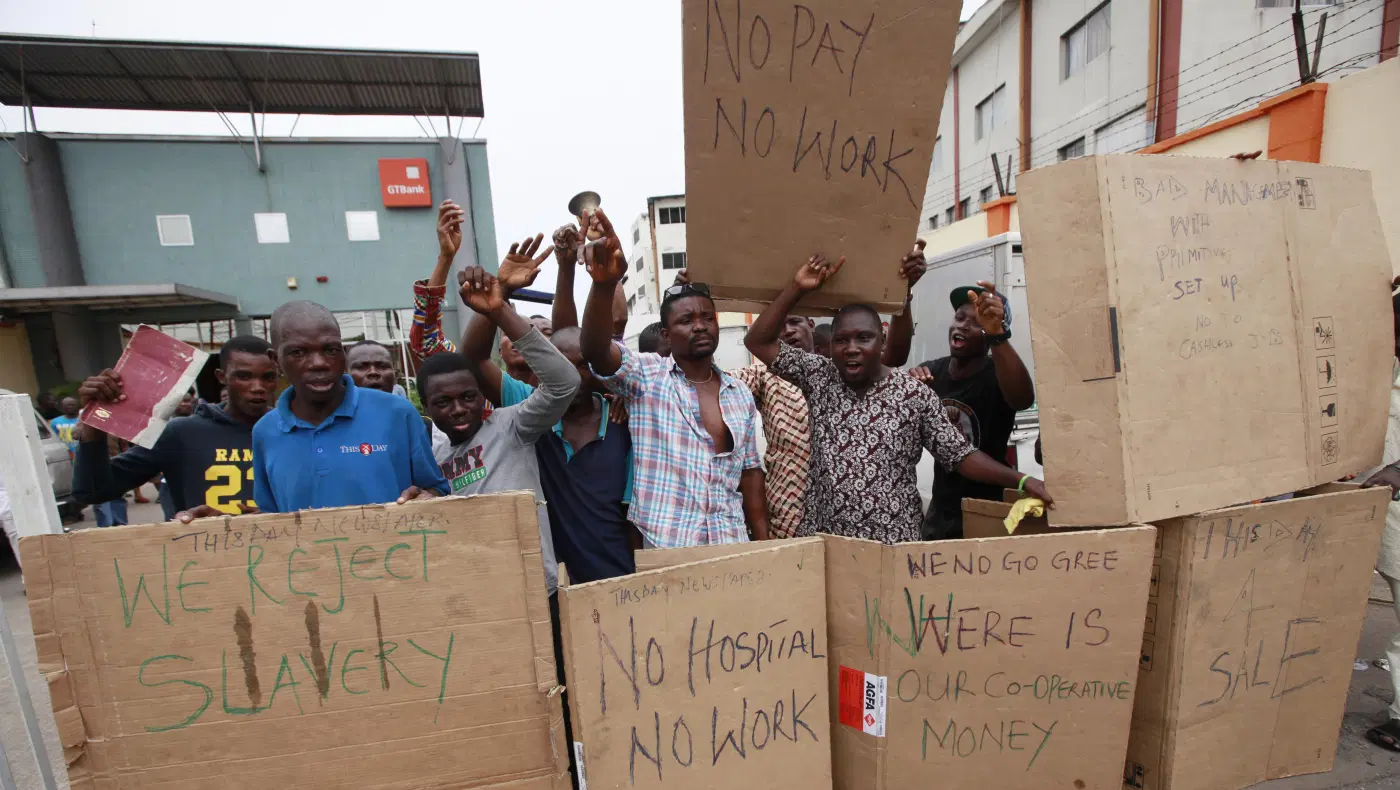 GTBank
NO PAY
NO WORK
BAD
WITH
PRIMITIVE
SET UP
NO TO
CASHLESS
RAM
23
THISDAY
MMY
HILFIGER
THISDAY NEWSPAPER.
WE REJECT
SLAVERY
THISDAY NEWSPAPER.
NO HOSPITAL
NO WORK
WE NO GO GREE
WHERE IS
OUR CO-OPERATIVE
MONEY
AGFA
THISDAY
4
SALE